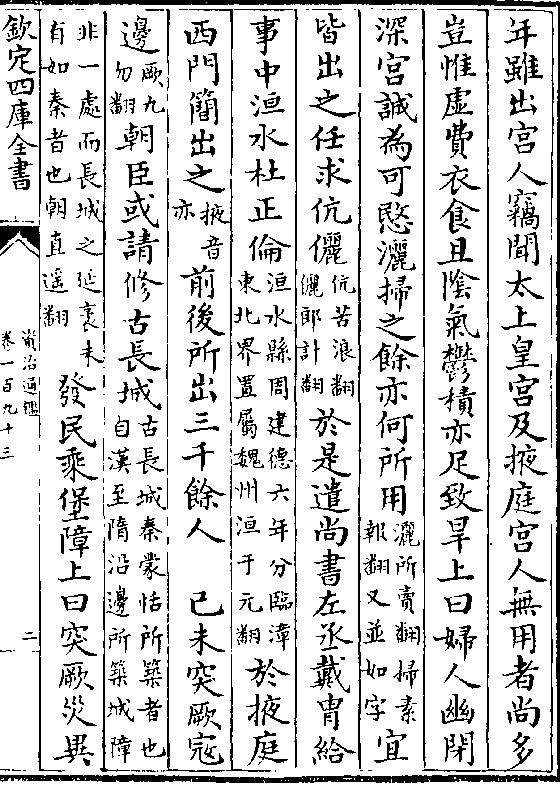 年雖出宮人竊聞太上皇宮及掖庭宮人無用者尚多
豈惟虛費衣食且陰氣鬱積亦足致旱上曰婦人幽閉
深宮誠為可愍灑掃之餘亦何所用灑所賣翻掃素報翻又並如字宜
皆出之任求伉儷伉苦浪翻儷郎計翻於是遣尚書左丞戴胄給
事中洹水杜正倫洹水縣周建德六年分臨漳東北界置屬魏州洹于元翻於掖庭
西門簡出之掖音亦前後所出三千餘人　已未突厥寇
邊厥九勿翻朝臣或請修古長城古長城秦蒙恬所築者也自漢至隋沿邊所築城障
非一處而長城之延袤未有如秦者也朝直遥翻發民乘堡障上曰突厥災異
欽定四庫全書
資治通鑑
卷一百九十三
二